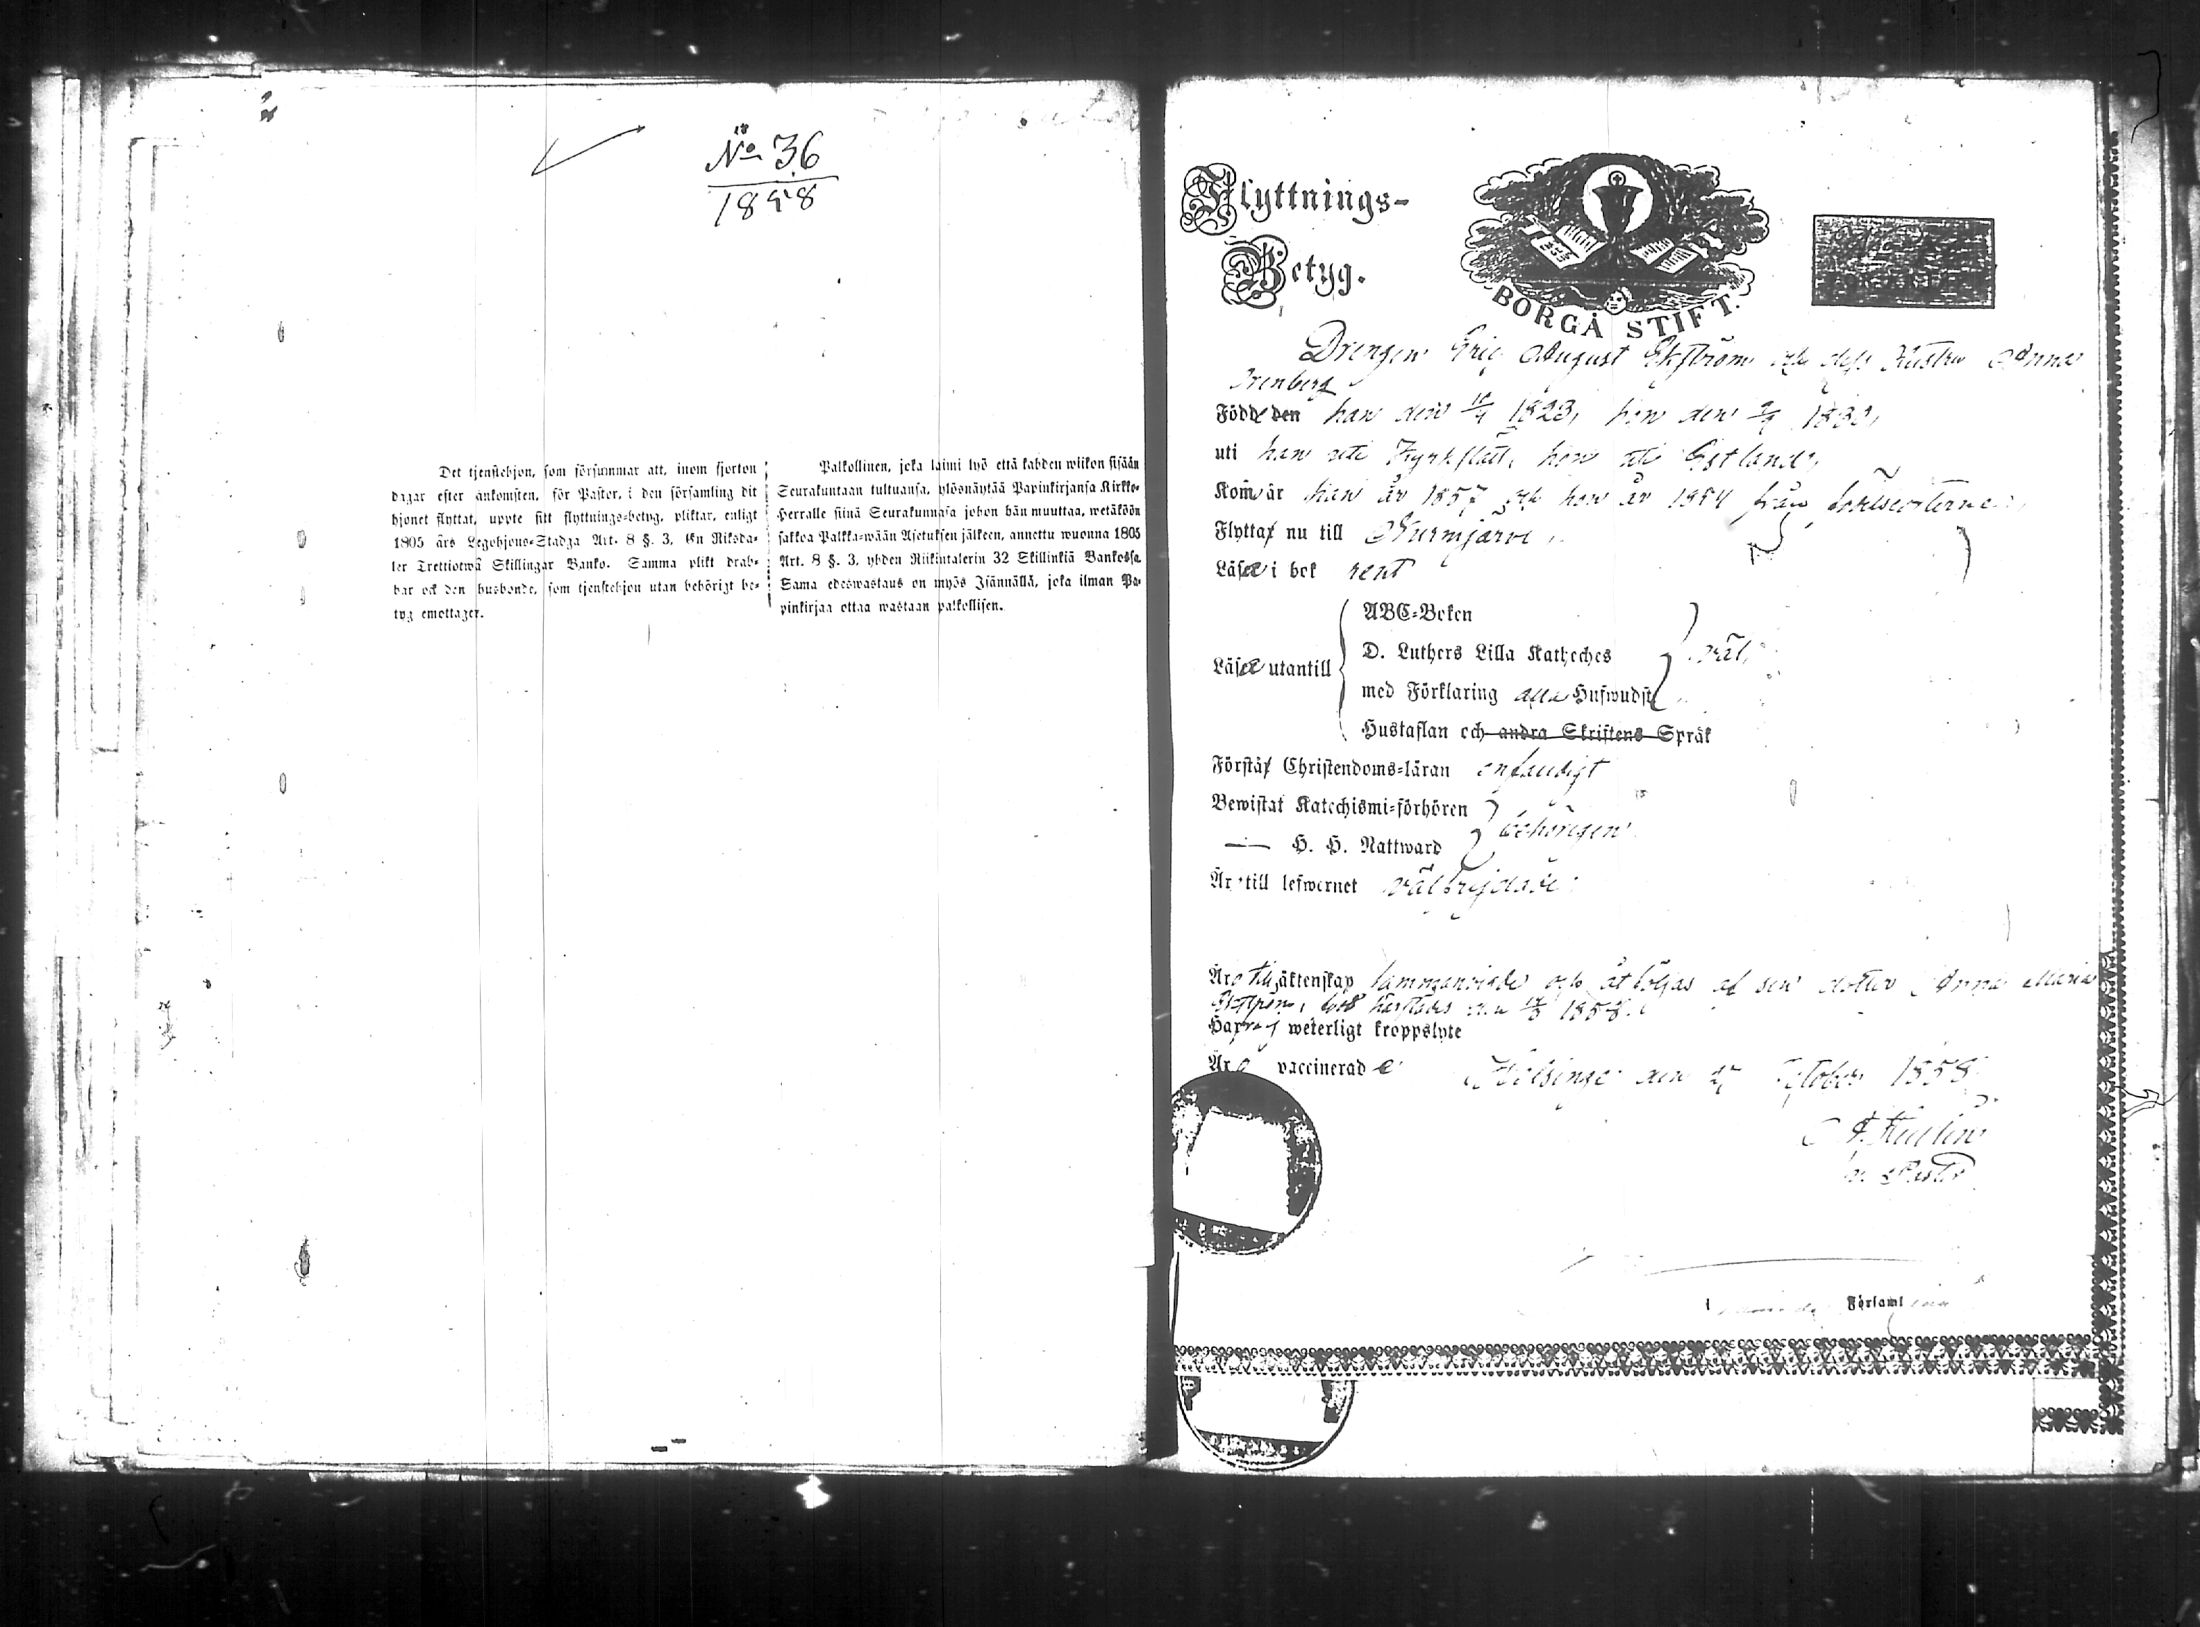 No 36
1858
Det tjenstehjon, som försummar att, inom fjorton
dagar efter ankomsten, för Pastor, i den församling dit
hjonet flyttat, uppte sitt flyttnings-betyg, pliktar, enligt
1805 års Legohjons-Stadga Art. 8 §. 3, En Riksda-
ler Trettiotwå Skillingar Banko. Samma plikt drab-
bar ock den husbonde, som tjenstehjon utan behörigt be-
tyg emottager.
Palkollinen, joka laimi lyö että kahden wiikon sisään
Seurakuntaan tultuansa, ylösnäytää Papinkirjansa Kirkko-
Herralle siinä Seurakunnasa johon hän muuttaa, wetäköön
sakkoa Palkka-wään Asetuksen jälkeen, annettu wuonna 1805
Art. 8 §. 3, yhden Riikintalerin 32 Skillinkiä Bankossa.
Sama edeswastaus on myös Isännällä, joka ilman Pa-
pinkirjaa ottaa wastaan palkollisen.
Flyttnings-
Betyg.
BORGÅ STIFT.
Drengen Eric August Ekström och dess Hustru Anna
Födde den han den 1823, hon den
uti han uti Kyrkslätt, hon uti Estland,
Kom år han år 1857 och hon år 1854 från
Flytta nu till Nurmijärvi
Läsa i bok rent
ABC-Boken
D. Luthers Lilla Katheches
Läsa utantill väl
med Förklaring alla Hufwudst
Hustaflan och andra Skriftens Språk
Förstå Christendoms-läran enfaldigt
Bewistat Katechismi-förhören
behörigen
H. H. Nattward
Är till lefwernet välfrejdade
Äro till äktenskap sammanvigde och åtföljas af sin dotter Anna Maria
Ekström, född 1858.
Ha weterligt kroppslyte
Äro vaccinerade
Helsinge den October 1858
v. Pastor
Församl